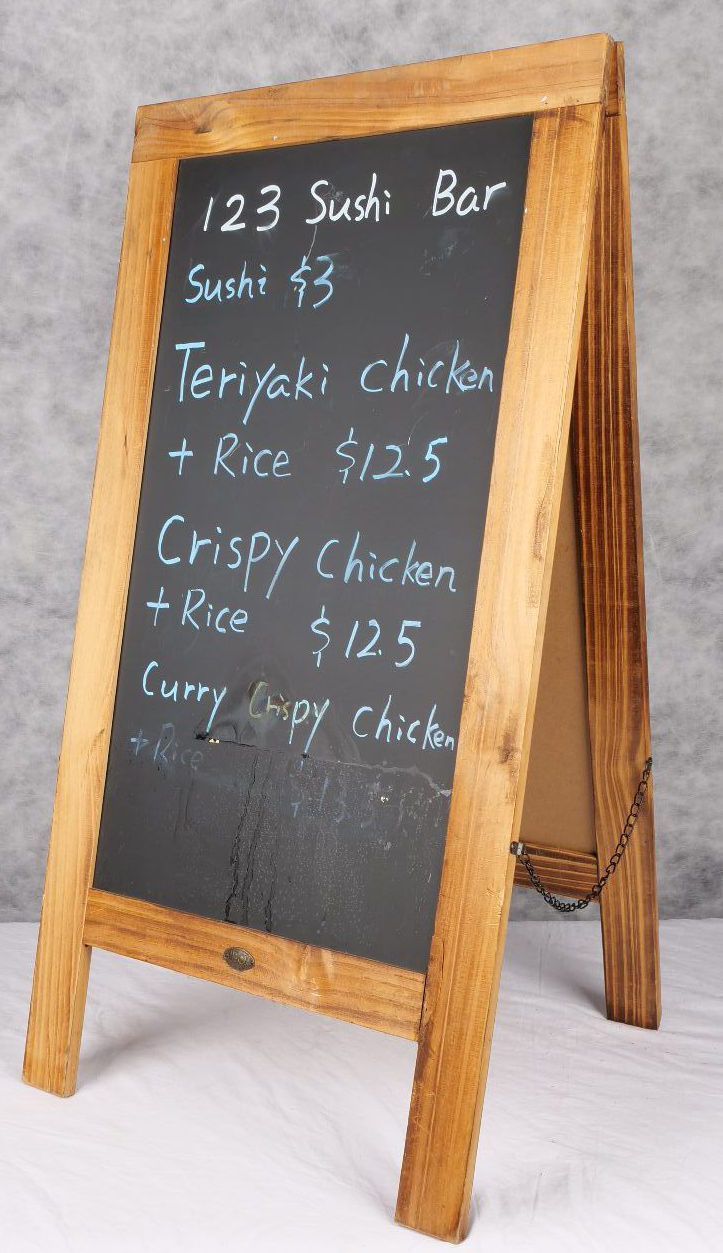 123 Sushi Bar
Sushi $3
Teriyaki chicken
+ Rice $12.5
Crispy Chicken
+ Rice $12.5
Curry Crispy chicken
+ Rice